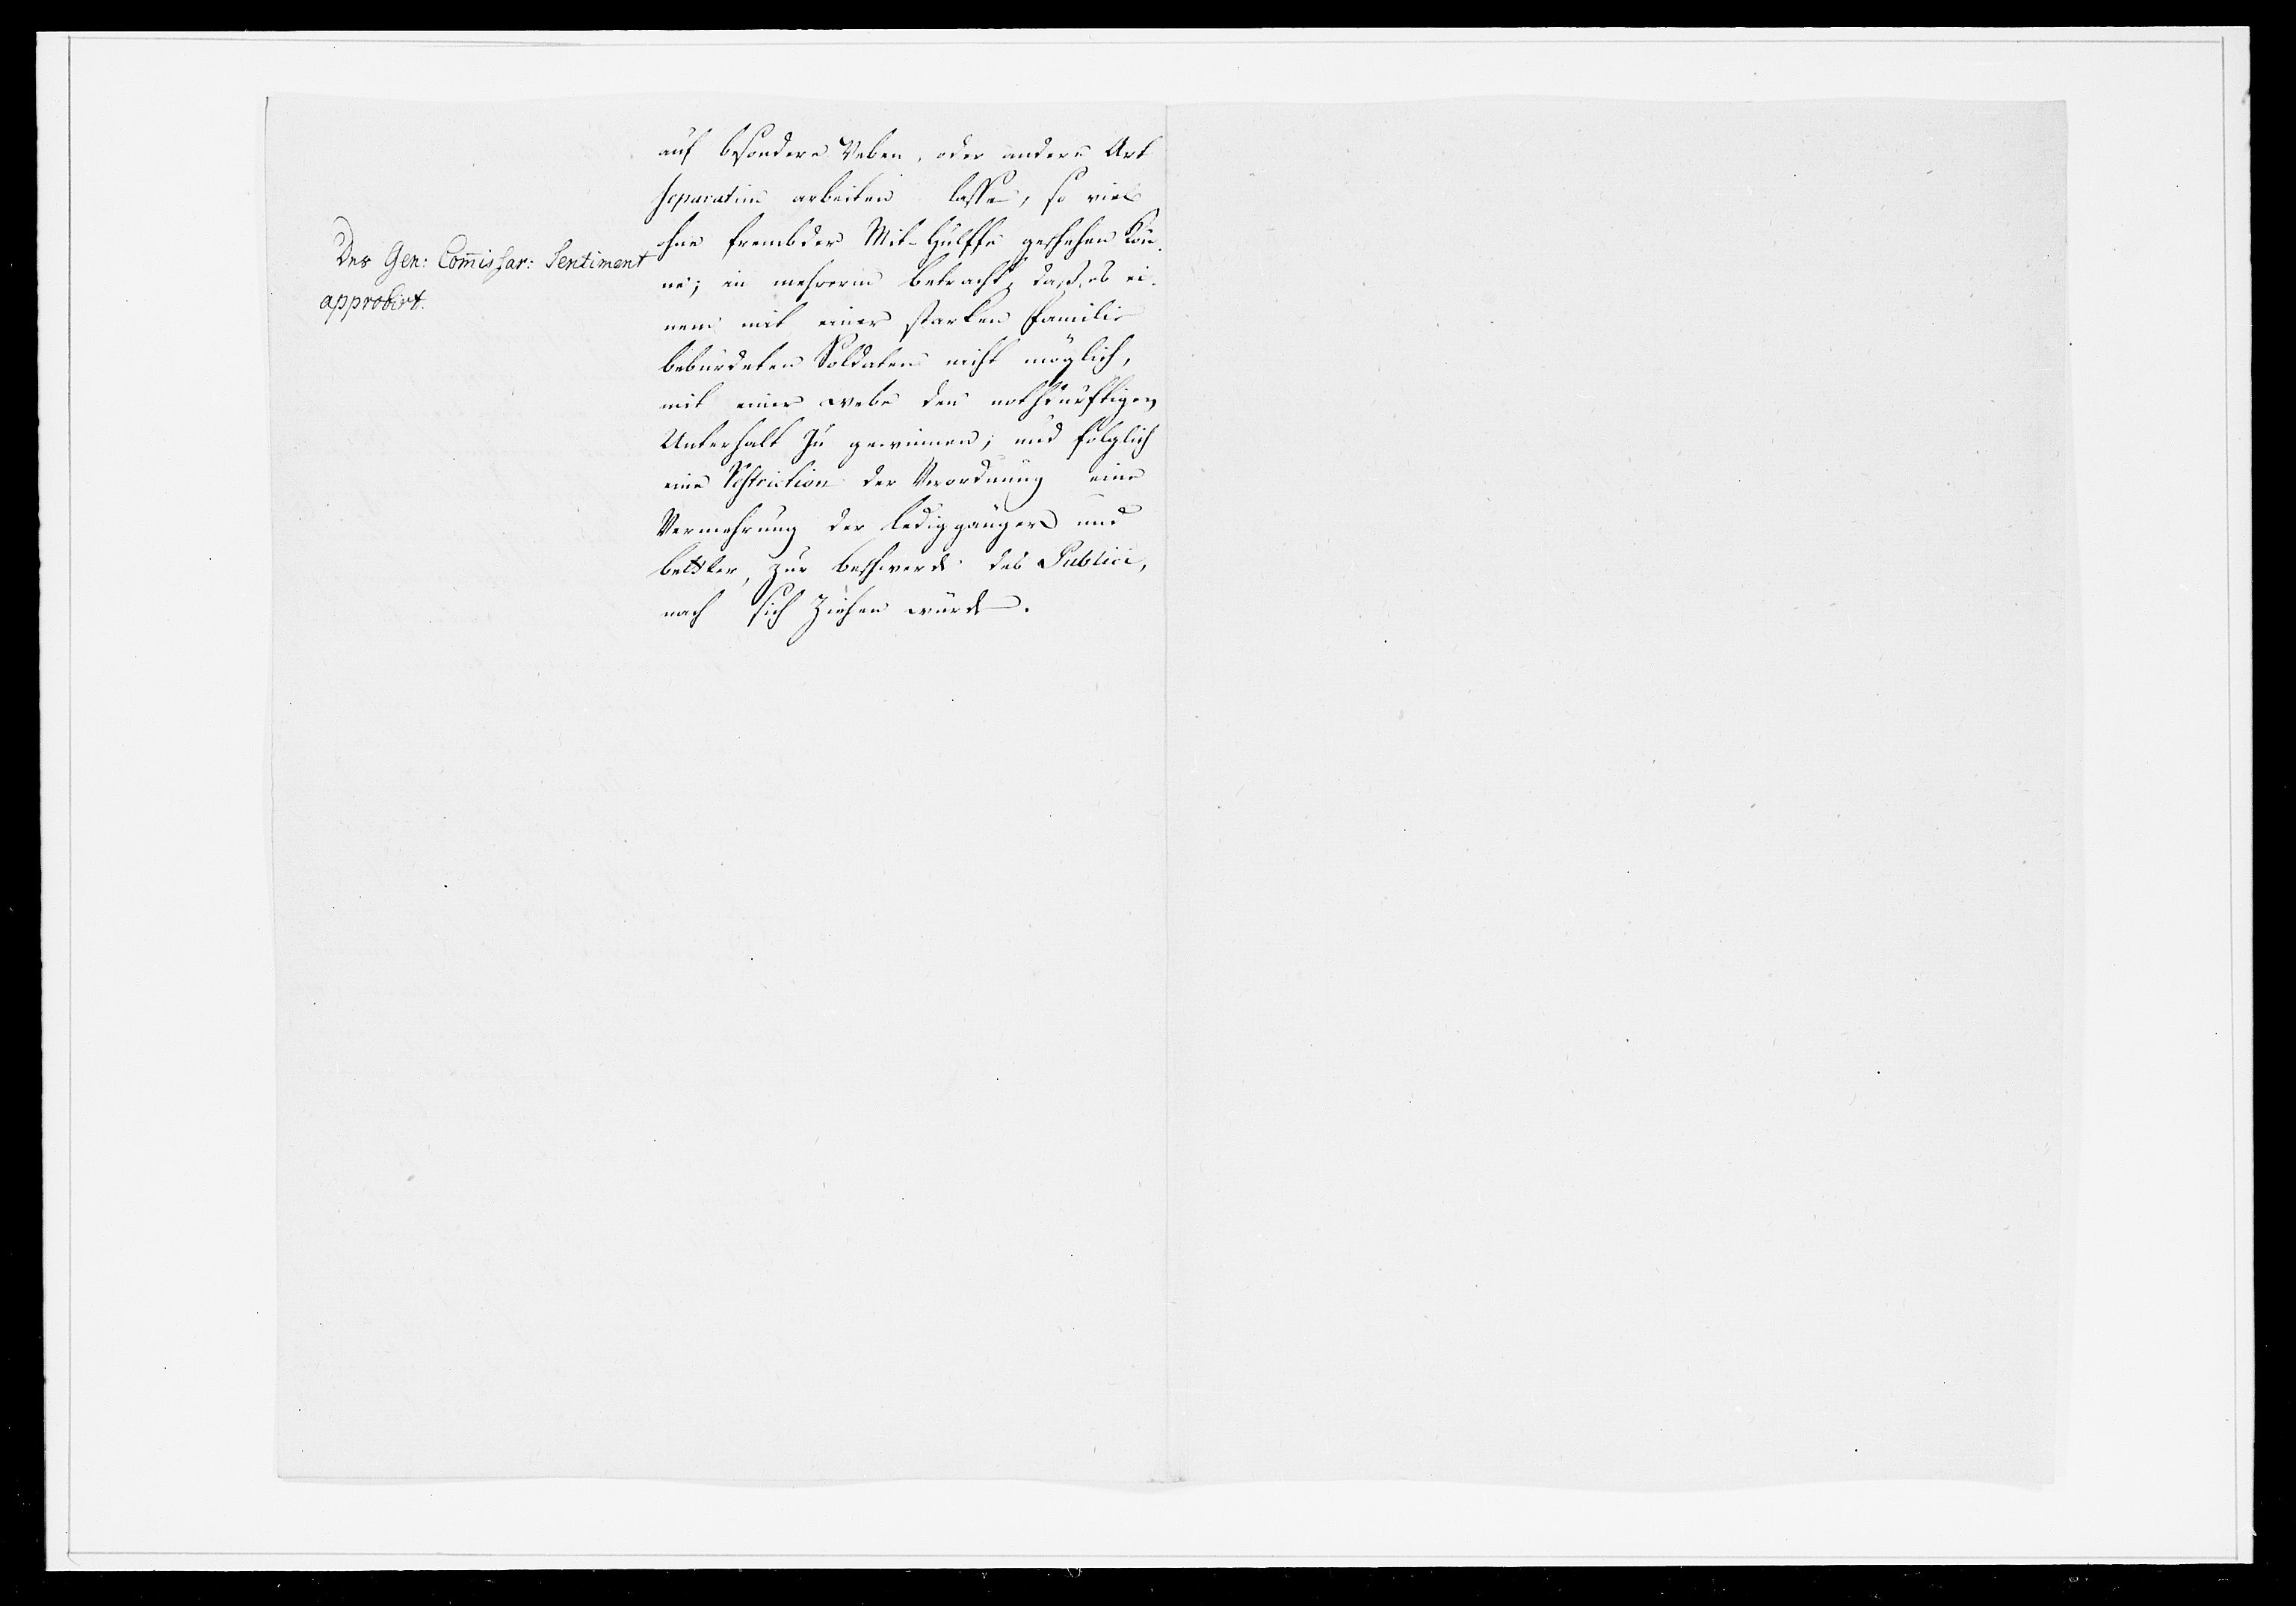 Des Gen: Com̄issar: Sentiment
approbirt.
auf besondere Weben, oder andere Art
separatim arbeiten lassen, so viel
ohne frembder Mit-Hülffe geschehen kön-
ne; in mehrerm betracht, daß es ei-
nem mit einer starken Familie
bebürdeten Soldaten nicht möglich,
mit einer webe den nothdürftigen
Unterhalt zu gewinnen; und folglich
eine Restriction der Verordnung eine
Vermehrung der Lediggänger und
bettler, zur beschwerde des Publici,
nach sich ziehen würde.